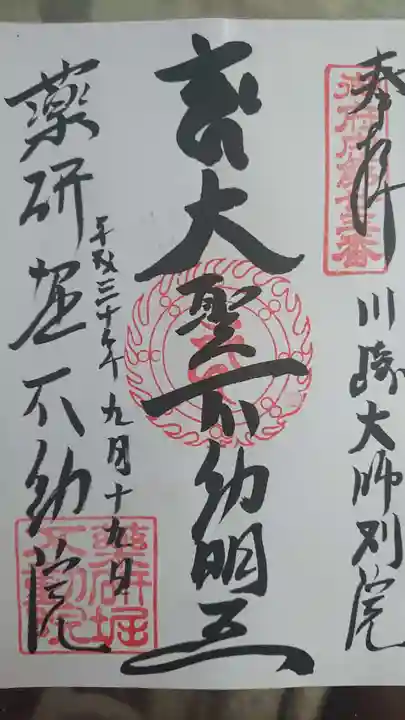 奉拝
川崎大師別院
大聖不動明王
平成三十年九月十九日
薬研堀不動院
藥研堀
不動院